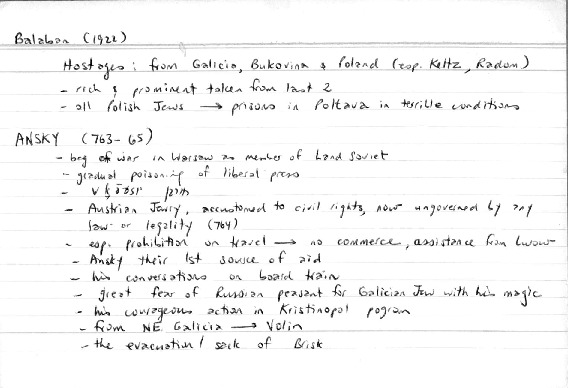 Balaban (1922)
Hostages: from Galicia, Bukovina & Poland (esp. Keltz, Radom)
- rich & prominent taken from last 2
- all Polish Jews → prisons in Poltava in terrible conditions
ANSKY (763-65)
- beg of war in Warsaw as member of Land Soviet
- gradual poisoning of liberal press
-
- Austrian Jewry, accustomed to civil rights, now ungoverned by any
law or legality (764)
- esp. prohibition on travel → no commerce, assistance from Lwow
- Ansky their 1st source of aid
- his conversations on board train
- great fear of Russian peasant for Galician Jew with his magic
- his courageous action in Kristinopol pogrom
- from NE Galicia → Volin
- the evacuation/ sack of Brisk